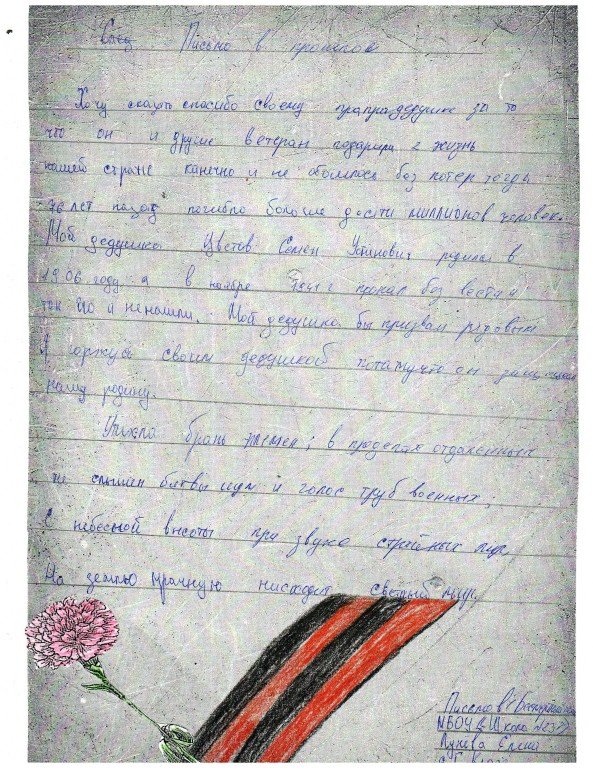 Письмо в прошлое
Хочу сказать спасибо своему прапрадедушке за то
что он и другие ветеран подарили жизнь
нашей стране канечно и не обошлось без потер тогда
70 лет назад погибло больше десяти миллионов человек.
Мой дедушка Цветов Семен Устинович родился в
1906 году а в ноябре 1941 г пропал без вести и
так его и ненашли. Мой дедушка бы призван рядовым
Я горжусь своим дедушкой потамучто он
нашу родину.
Утихла брань племен; в пределах отдаленных
не слышен битвы шум и голос труб военных;
С небесной высоты при звуке стройных лир
На землю мрачную нисходит светлый мир
Письмо
МБОУ Школа
Елена